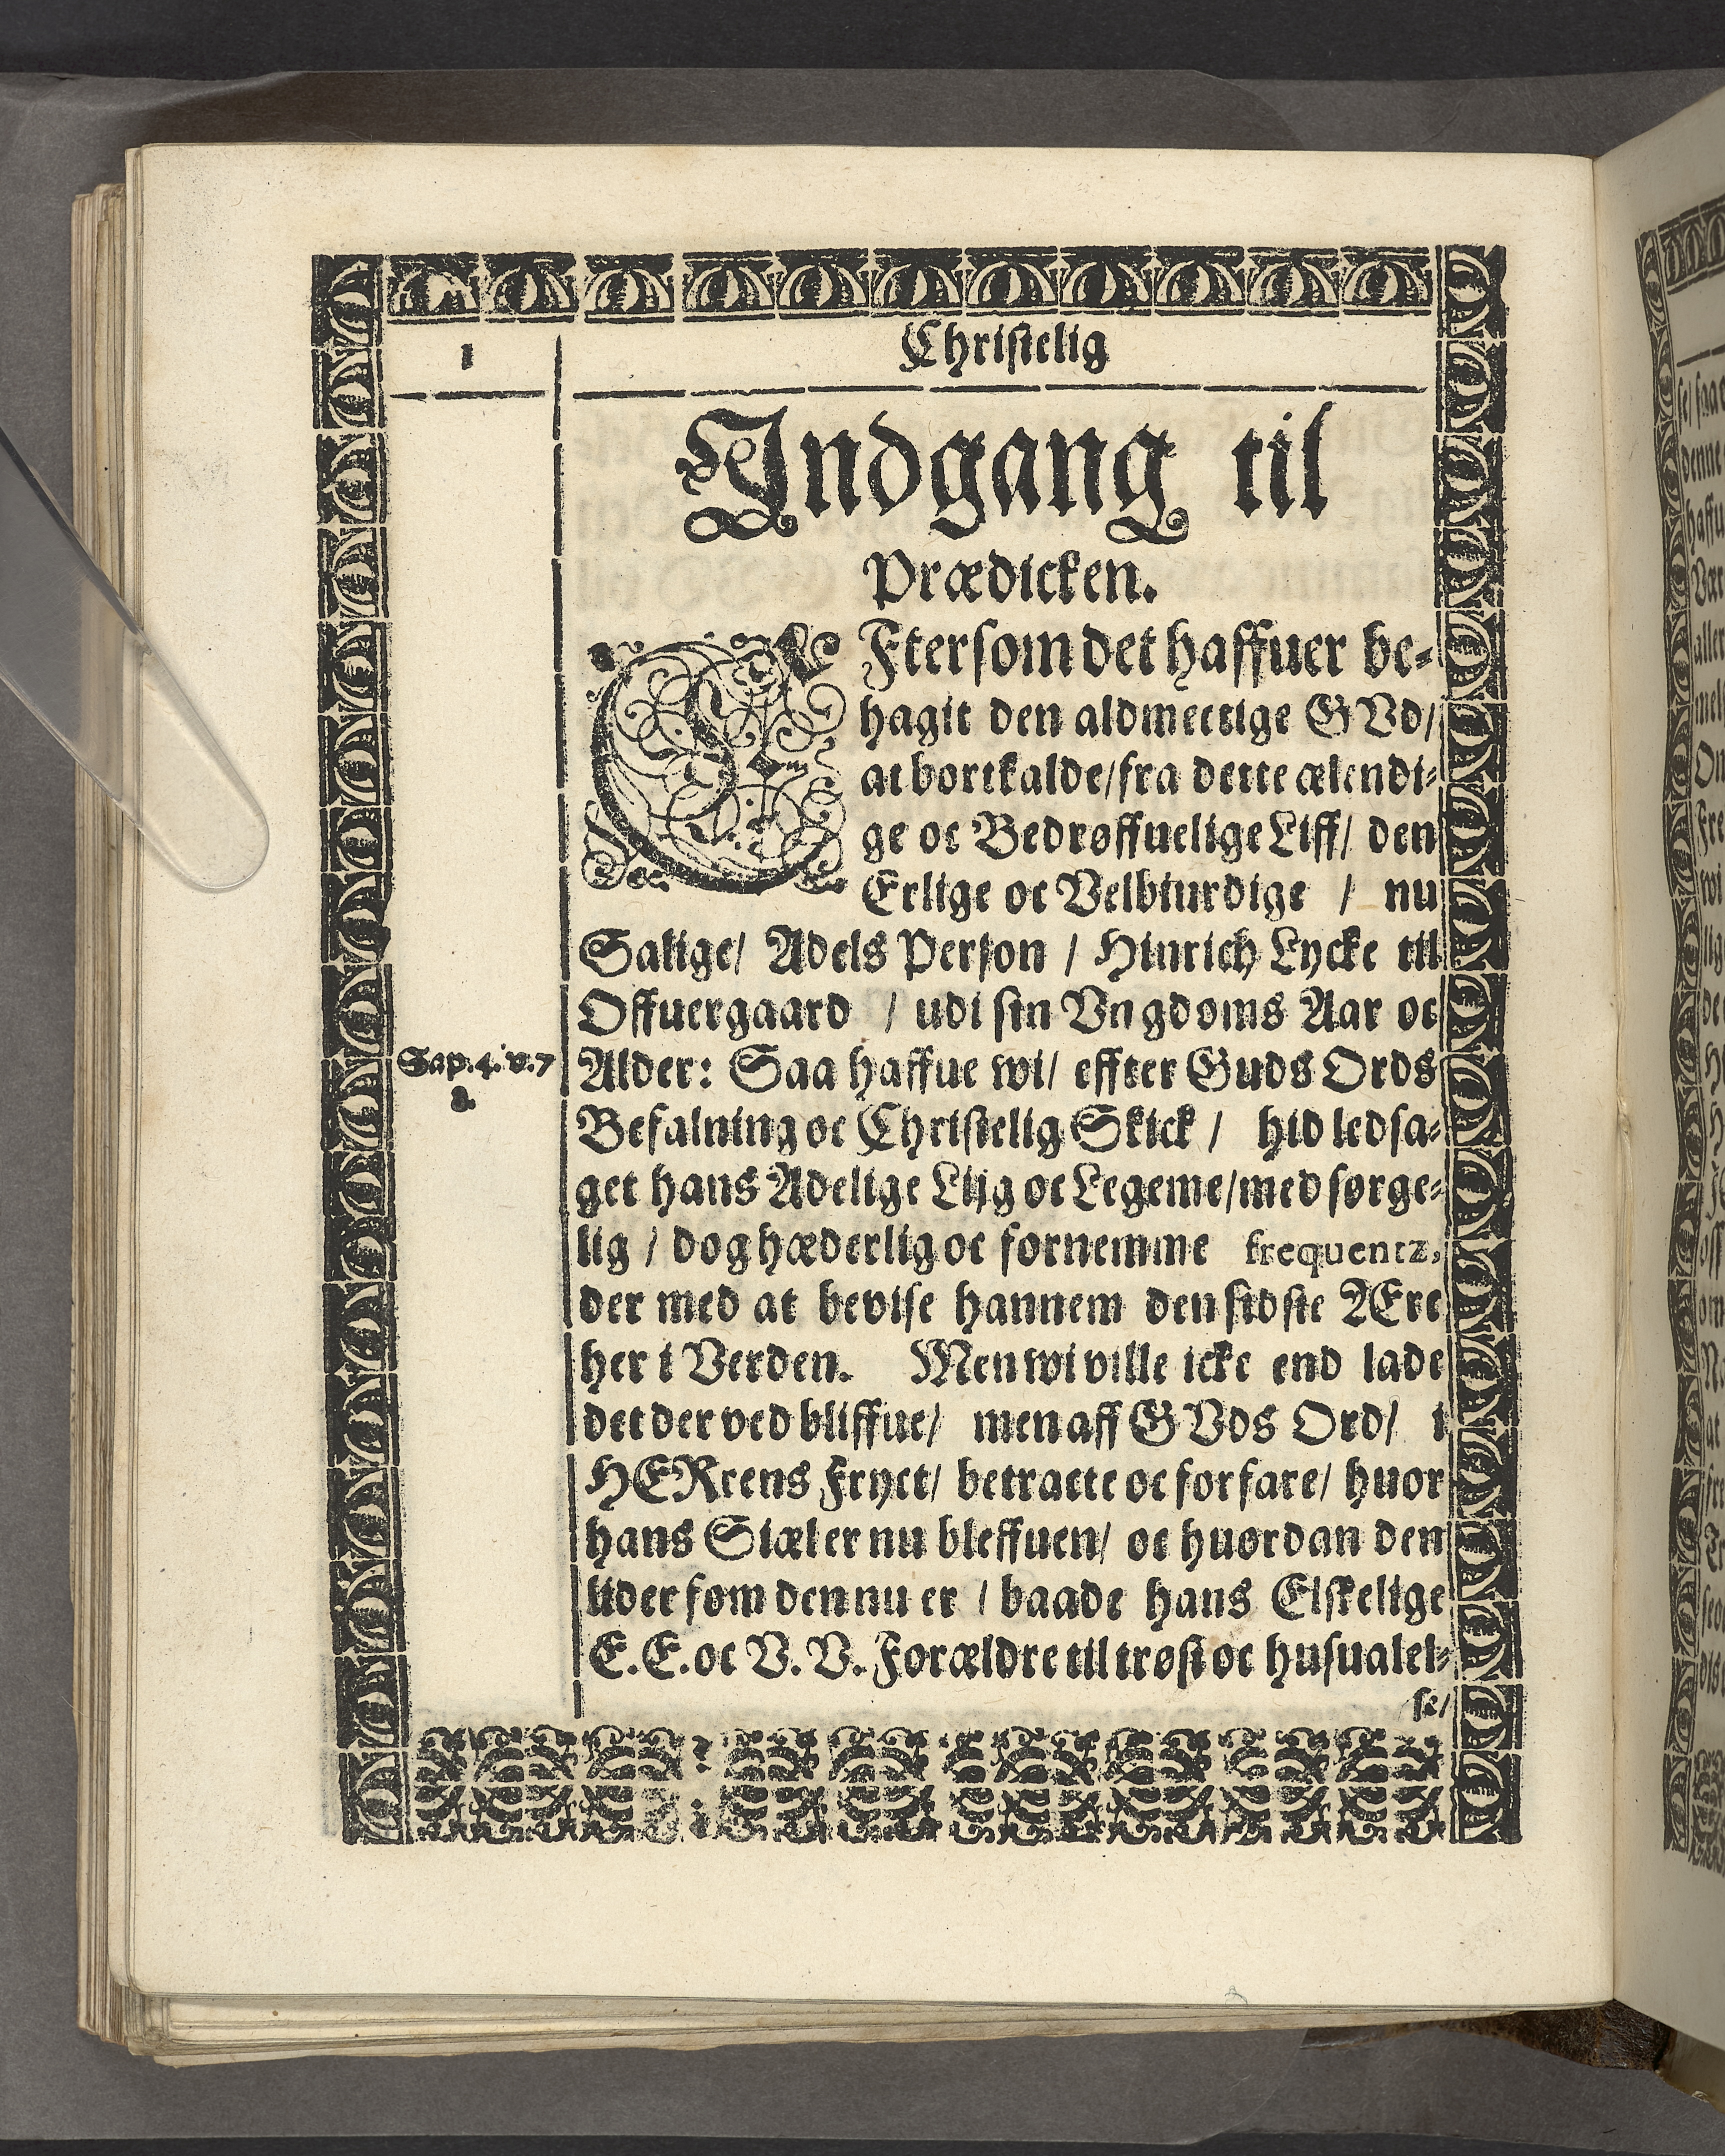 1
Christelig
Indgang til
Prædicken.
EFtersom det haffuer be-
hagit den aldmectige GVd/
at bortkalde/fra dette ælendi-
ge oc Bedrøffuelige Liff/ den
Erlige oc Velbiurdige / nu
Salige/ Adels Person / Hinrich Lycke til
Offuergaard / udi sin Vngdoms Aar oc
Sap. 4. v. 7
8.
Alder: Saa haffue wi/ effter Guds Ords
Befalning oc Christelig Skick / hid ledsa-
get hans Adelige Liig oc Legeme/med sørge-
lig / dog hæderlig oc fornemme frequentz,
der med at bevise hannem den sidste ÆEre
her i Verden. Men wi ville icke end lade
det der ved bliffue/ men aff GVds Ord/ i
HERrens Fryct/ betracte oc forfare/ huor
hans Siæl er nu bleffuen/ oc huordan den
lider som den nu er / baade hans Elskelige
E. E. oc V. V. Forældre til trøst oc husualel-
se/